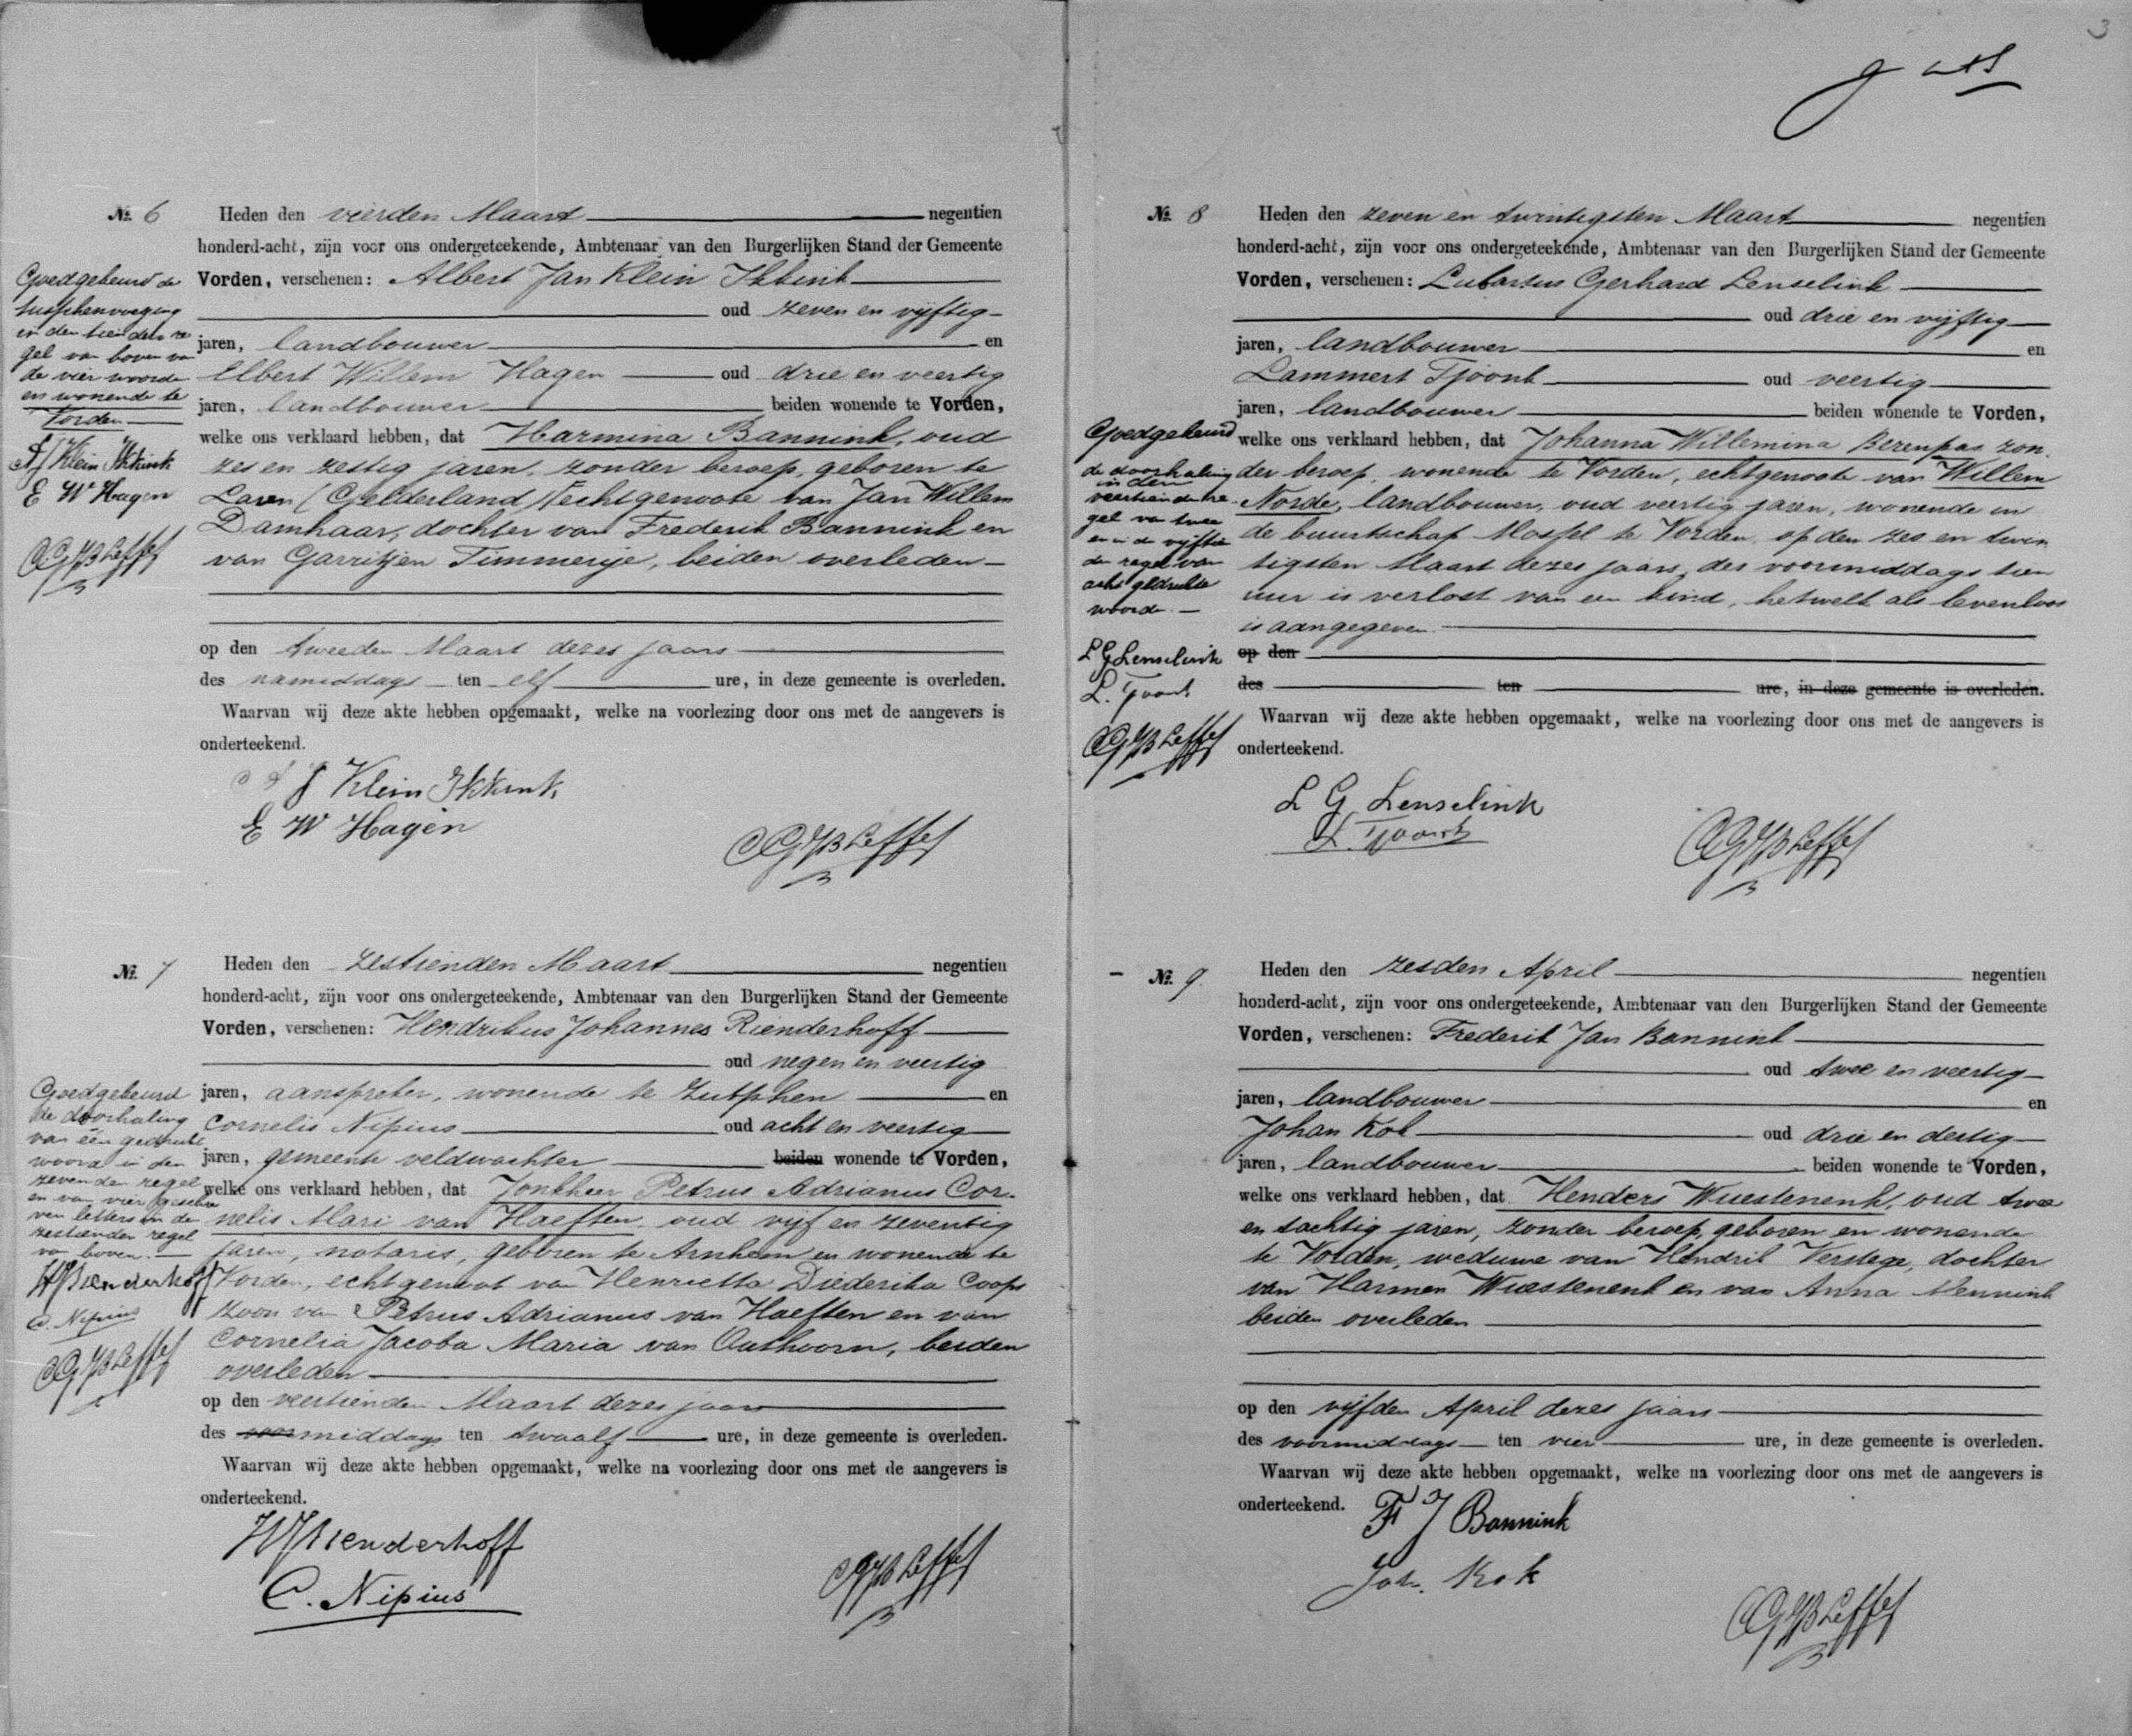 3
No. 6 Heden den vierden Maart negentien
honderd-acht, zijn voor ons ondergeteekende, Ambtenaar van den Burgerlijken Stand der Gemeente
Vorden, verschenen: Albert Jan Klein Ikkink
oud zeven en vijftig
jaren, landbouwer en
Elbert Willem Hagen oud drie en veertig
jaren, landbouwer beiden wonende te Vorden,
welke ons verklaard hebben, dat Harmina Bannink, oud
zes en zestig jaren, zonder beroep, geboren te
Laren (Gelderland) echtgenoote van Jan Willem
Damhaar, dochter van Frederik Bannink en
van Garritjen Timmerije, beiden overleden
op den tweeden Maart dezes jaars
des namiddags ten elf ure, in deze gemeente is overleden.
Waarvan wij deze akte hebben opgemaakt, welke na voorlezing door ons met de aangevers is
onderteekend.
A J Klein Ikkink
E W Hagen
Goedgekeurd de
tusschenvoeging
in den tienden re
gel van boven van
de vier woorden
en wonende te
Vorden
A J Klein Ikkink
E W Hagen
No. 7 Heden den zestienden Maart negentien
honderd-acht, zijn voor ons ondergeteekende, Ambtenaar van den Burgerlijken Stand der Gemeente
Vorden, verschenen: Hendrikus Johannes Rienderhoff
oud negen en veertig
jaren, aanspreker, wonende te Zutphen en
Cornelis Nipius oud acht en veertig
jaren, gemeente veldwachter beiden wonende te Vorden,
welke ons verklaard hebben, dat Jonkheer Petrus Adrianus Cor-
nelis Mari van Haeften oud vijf en zeventig
jaren, notaris, geboren te Arnhem en wonende te
Vorden, echtgenoot van Henrietta Diederika Coops
zoon van Petrus Adrianus van Haeften en van
Cornelia Jacoba Maria van Outhoorn, beiden
overleden
op den veertienden Maart dezes jaars
des voormiddags ten twaalf ure, in deze gemeente is overleden.
Waarvan wij deze akte hebben opgemaakt, welke na voorlezing door ons met de aangevers is
onderteekend.
HJRienderhoff
C. Nipius
Goedgekeurd
de doorhaling
van één gedrukt
woord in den
zevenden regel
en van vier geschre
ven letters in den
zestienden regel
van boven.
HJRienderhoff
C. Nipius
No. 8 Heden den zeven en twintigsten Maart negentien
honderd-acht, zijn voor ons ondergeteekende, Ambtenaar van den Burgerlijken Stand der Gemeente
Vorden, verschenen: Lubartus Gerhard Lenselink
oud drie en vijftig
jaren, landbouwer en
Lammert Tjoonk oud veertig
jaren, landbouwer beiden wonende te Vorden,
welke ons verklaard hebben, dat Johanna Willemina Berenpas zon-
der beroep, wonende te Vorden, echtgenoote van Willem
Norde, landbouwer, oud veertig jaren, wonende in
de buurtschap Mossel te Vorden, op den zes en twin
tigsten Maart dezes jaars, des voormiddags tien
uur is verlost van een kind, hetwelk als levenloos
is aangegeven.
op den
des ten ure, in deze gemeente is overleden.
Waarvan wij deze akte hebben opgemaakt, welke na voorlezing door ons met de aangevers is
onderteekend.
L G Lenselink
L. Tjoonk
Goedgekeurd
de doorhaling
in den
veertienden re
gel van twee
en in de vijftien
de regel van
acht gedrukte
woorden.
L G Lenselink
L. Tjoonk
No. 9. Heden den zesden April negentien
honderd-acht, zijn voor ons ondergeteekende, Ambtenaar van den Burgerlijken Stand der Gemeente
Vorden, verschenen: Frederik Jan Bannink
oud twee en veertig
jaren, landbouwer en
Johan Kok oud drie en dertig
jaren, landbouwer beiden wonende te Vorden,
welke ons verklaard hebben, dat Henders Wuestenenk, oud twee
en tachtig jaren, zonder beroep, geboren en wonende
te Vorden, weduwe van Hendrik Verstege, dochter
van Harmen Wuestenenk en van Anna Mennink
beiden overleden
op den vijfden April dezes jaars
des voormiddags ten vier ure, in deze gemeente is overleden.
Waarvan wij deze akte hebben opgemaakt, welke na voorlezing door ons met de aangevers is
onderteekend.
F J Bannink
Joh. Kok